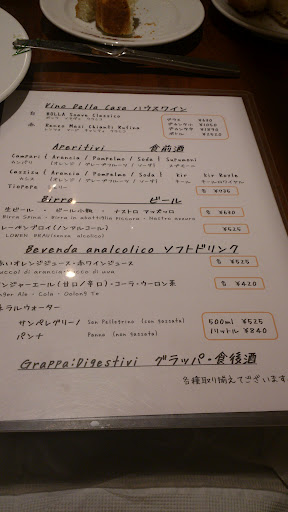 Vino Della Casa ハウスワイン
白 BOLLA Soave Classico
赤 Rocca Masi Chianti Rufina
グラス ¥630
ボトル
Aperitivi 食前酒
Campari (Arancia / Pompelmo / Soda) Spumoni
カンパリ (オレンジ / グレープフルーツ / ソーダ) スプモーニ
Cassis (Arancia / Pompelmo / Soda) Kir Kir Royale
カシス (オレンジ / グレープフルーツ / ソーダ) キール キールロワイヤル
Tiopepe 各 ¥735
Birra ビール
生ビール ・ ビール小瓶 ・ ナストロ アズーロ 各 ¥630
Birra Spina ・ Birra in bottiglia Piccola ・ Nastro azzuro
レーベンブロイ(ノンアルコール) ¥525
LOWEN BRAU(senza alcolico)
Bevenda analcolico ソフトドリンク
赤いオレンジジュース・赤ワインジュース ¥525
succo di arancia succo di uva
ジンジャーエール(甘口/辛口)・コーラ・ウーロン茶 各 ¥420
Ginger Ale ・ Cola ・ Oolong Te
ミネラルウォーター
サンペレグリーノ San Pellegrino (con gassata) 500ml ¥525
パンナ Panna (non gassata) 1リットル ¥840
Grappa:Digestivi グラッパ・食後酒
各種取り揃えでございます